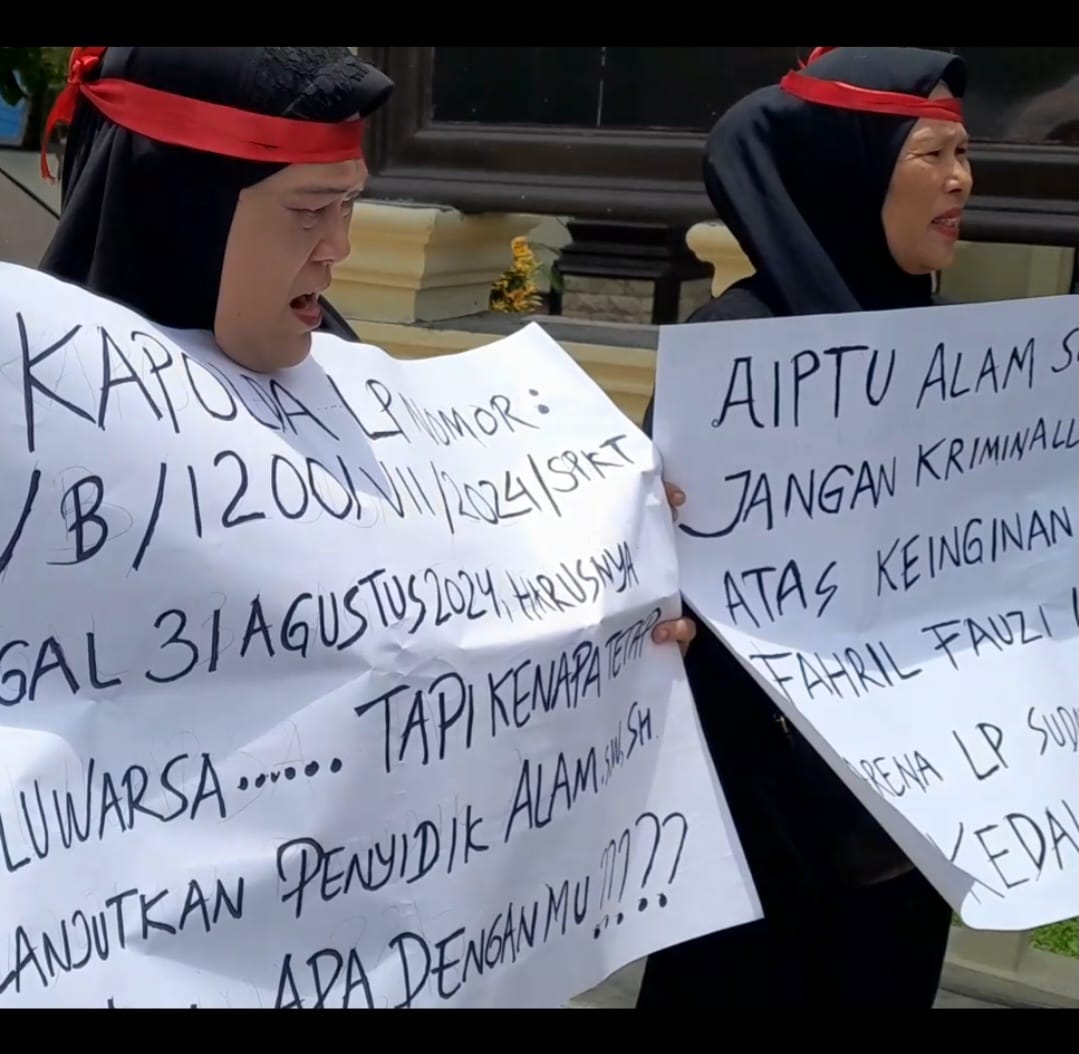 KAPOLDA LP NOMOR :
/B/1200/VII/2024/SPKT
GAL 31 AGUSTUS 2024, HARUSNYA
LUWARSA...... TAPI KENAPA TETAP
LANJUTKAN PENYIDIK ALAM.SW.SH.
APA DENGANMU????
AIPTU ALAM
JANGAN KRIMINALL
ATAS KEINGINAN
FAHRIL FAUZI
ARENA LP SUD
KEDAL